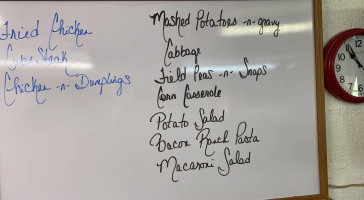 Fried Chicken
Cube Steak
Chicken -n- Dumplings
Mashed Potatoes -n- gravy
Cabbage
Field Peas -n- Snaps
Corn Casserole
Potato Salad
Bacon Ranch Pasta
Macaroni Salad